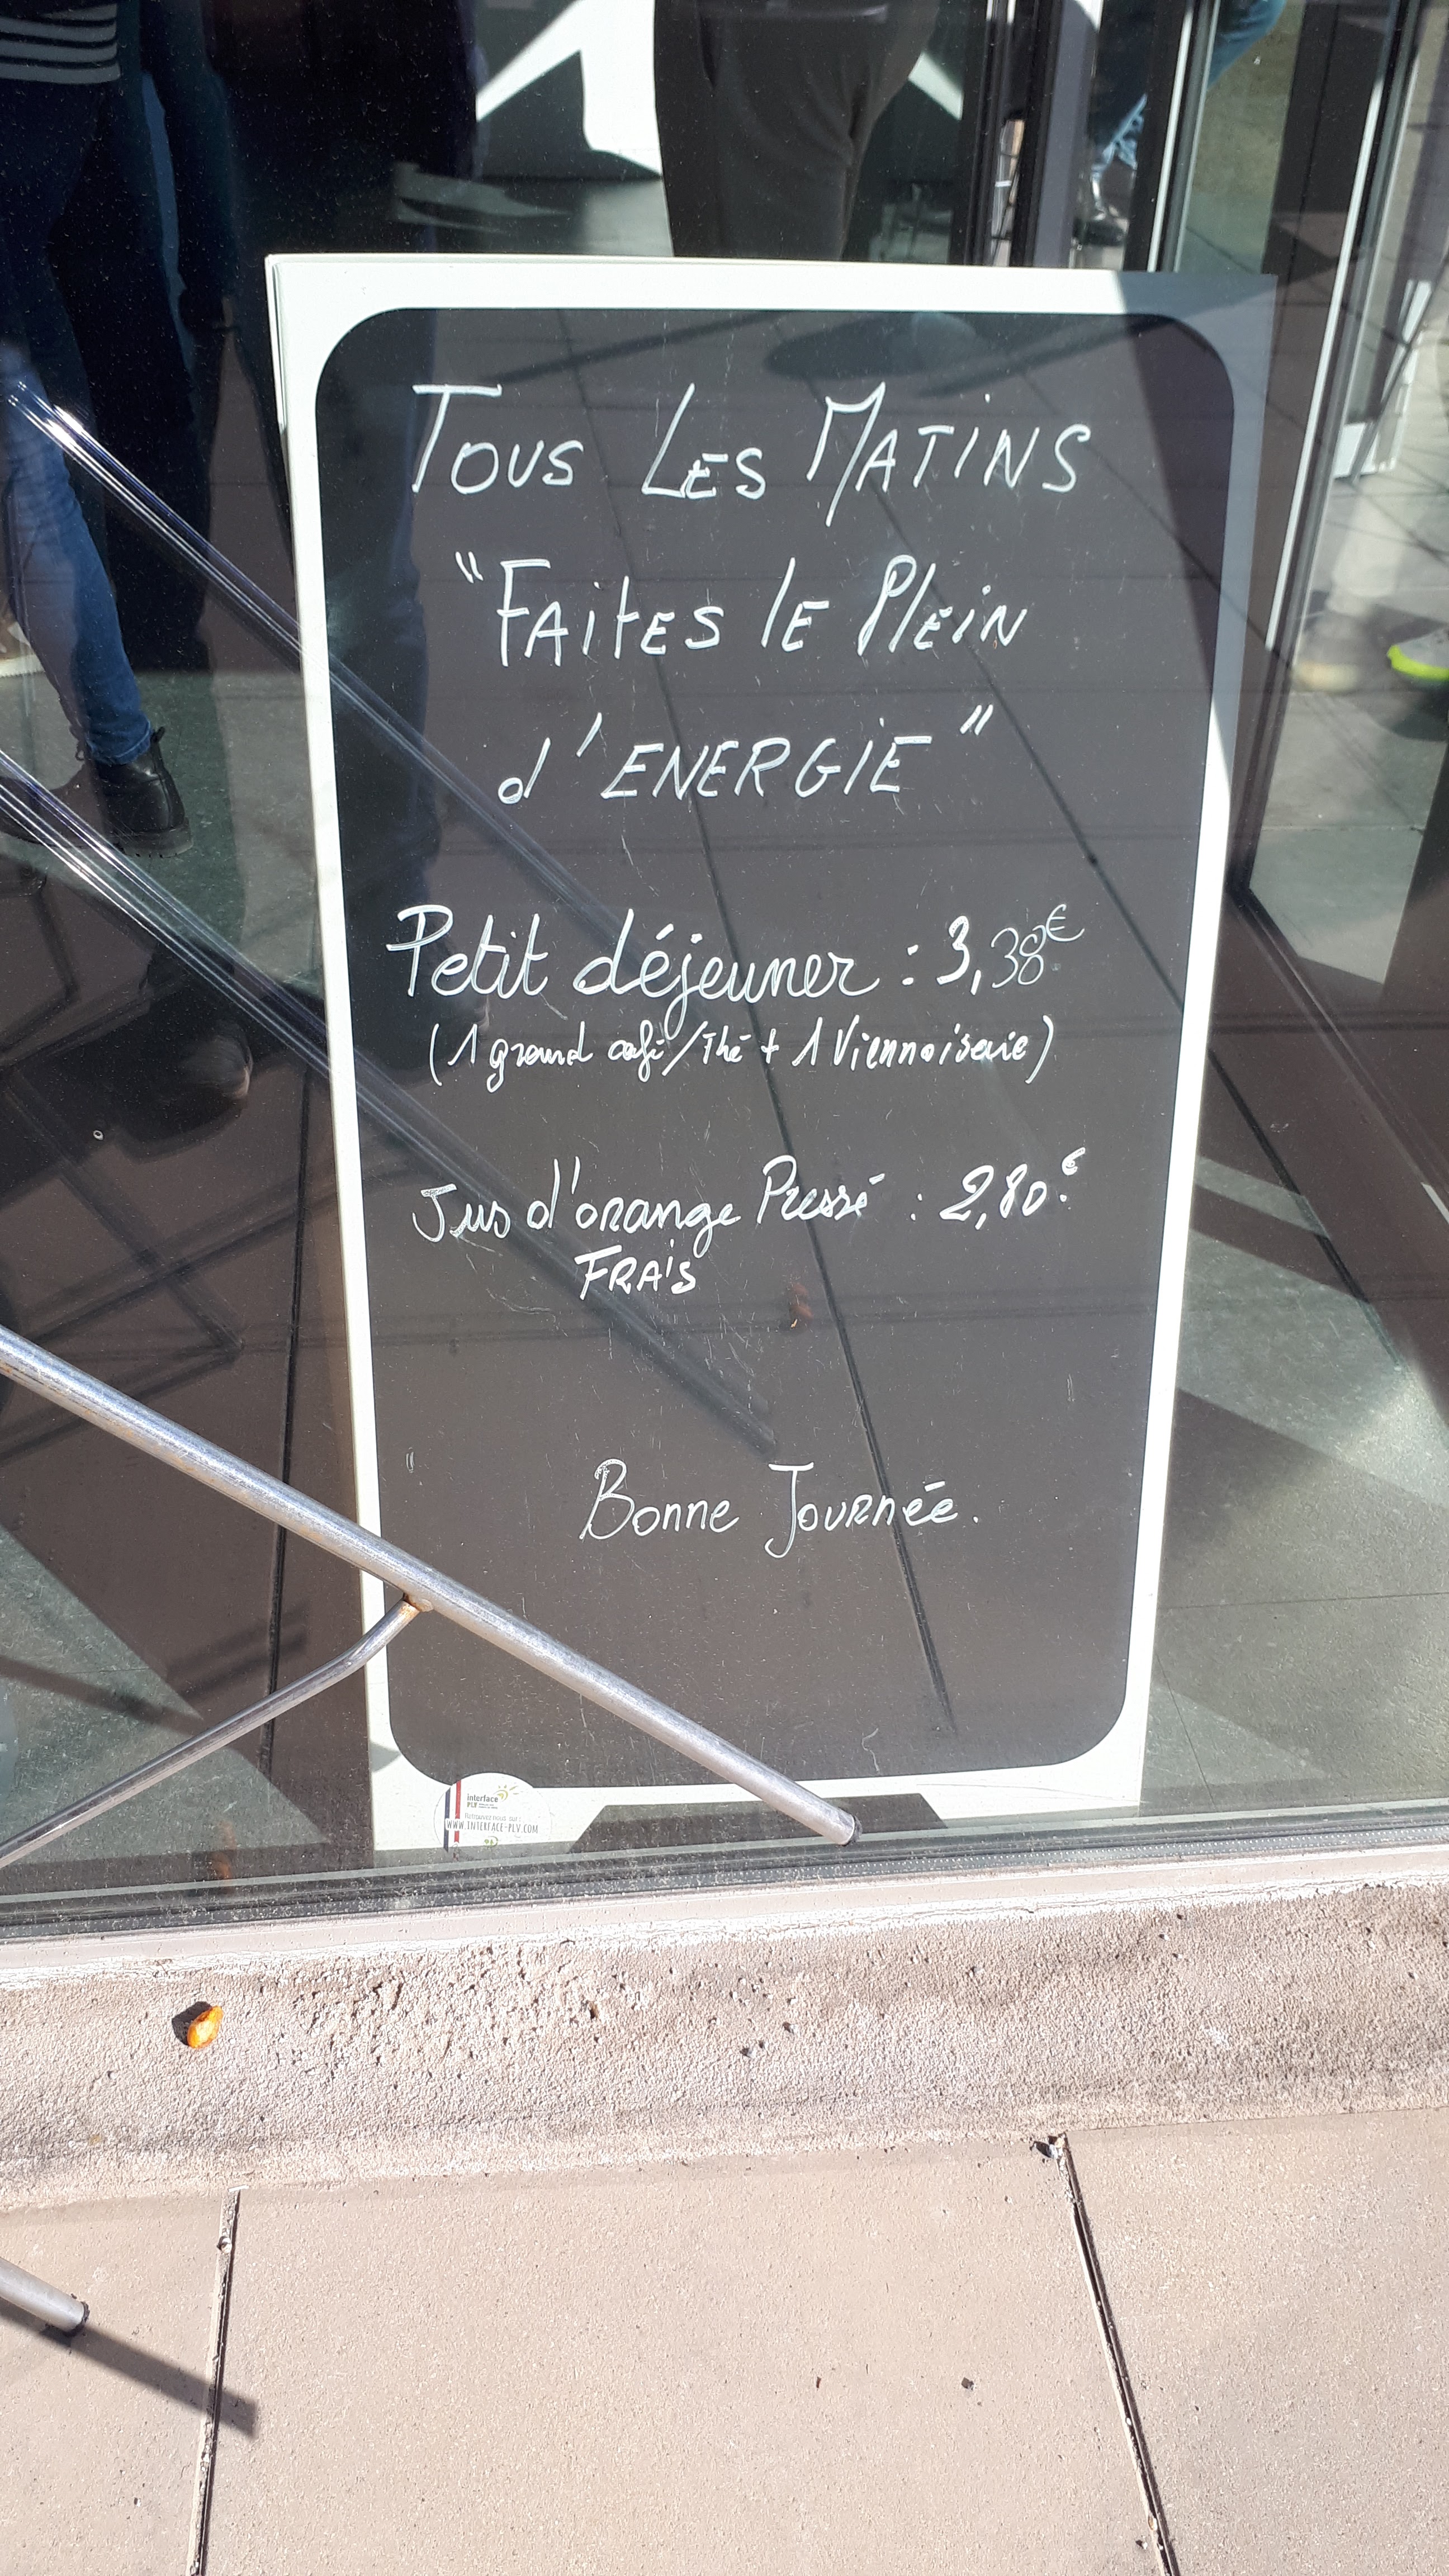 TOUS LES MATINS
"FAITES LE PLEIN
d'ENERGIE"
Petit déjeuner : 3,38€
(1 grand café/Thé + 1 Viennoiserie)
Jus d'orange Pressé : 2,80€
FRAIS
Bonne Journée.
interface
PLV
Retrouvez nous sur :
WWW.INTERFACE-PLV.COM